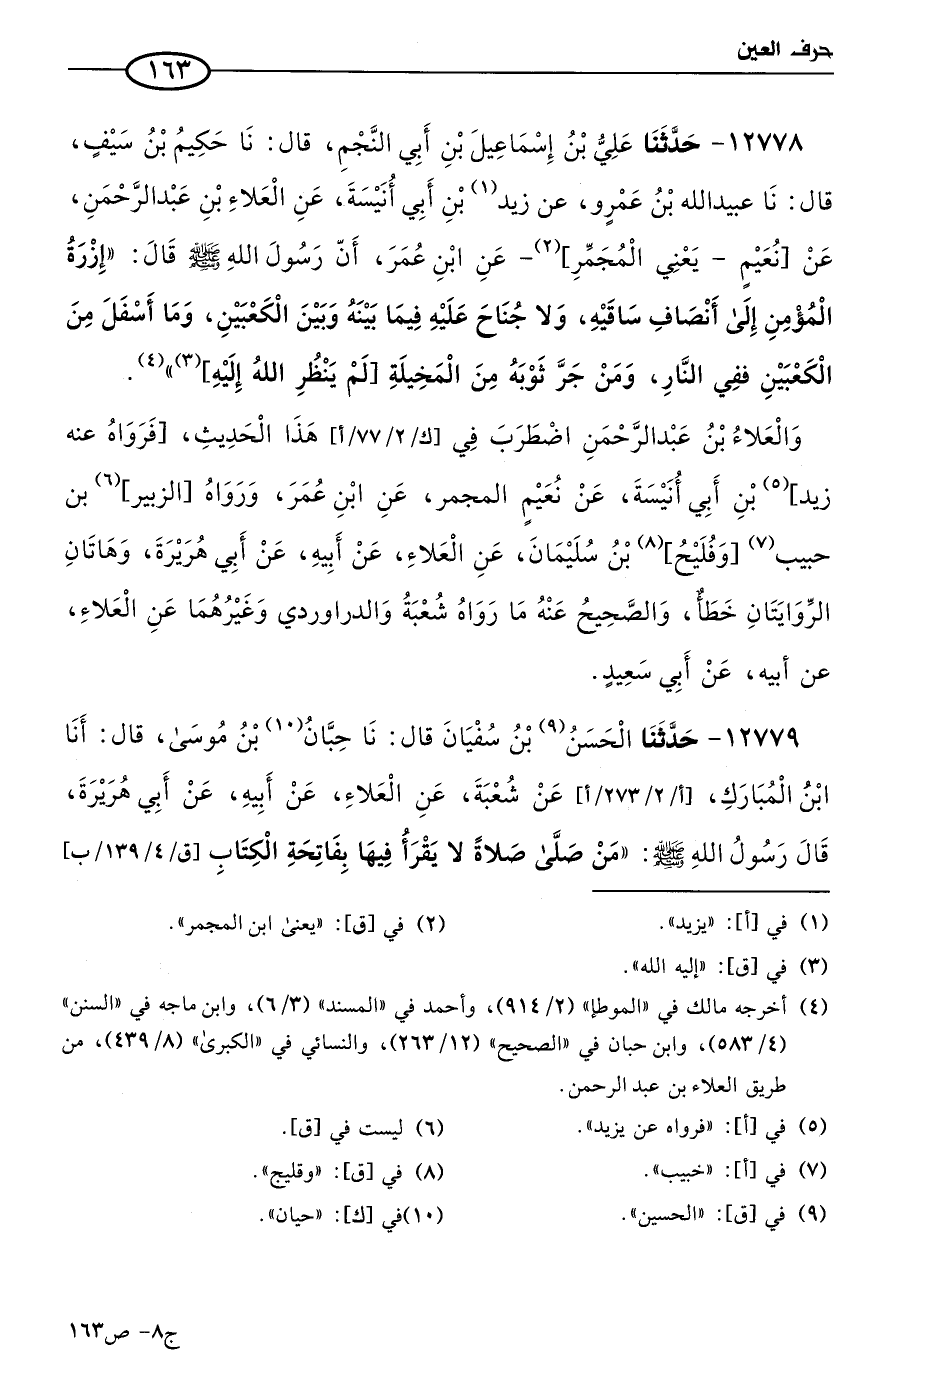 حرف العين
١٦٣
١٢٧٧٨- حَدَّثَنَا عَلِيُّ بْنُ إِسْمَاعِيلَ بْنِ أَبِي النَّجْمِ، قال: نَا حَكِيمُ بْنُ سَيْفٍ،
قال: نَا عبيدالله بْنُ عَمْرٍو، عن زيد(١) بْنِ أَبِي أُنَيْسَةَ، عَنِ الْعَلاءِ بْنِ عَبْدالرَّحْمَنِ،
عَنْ [نُعَيْمٍ - يَعْنِي الْمُجَمِّرِ](٢)- عَنِ ابْنِ عُمَرَ، أَنّ رَسُولَ اللهِ ﷺ قَالَ: «إِزْرَةُ
الْمُؤْمِنِ إِلَىٰ أَنْصَافِ سَاقَيْهِ، وَلا جُنَاحَ عَلَيْهِ فِيمَا بَيْنَهُ وَبَيْنَ الْكَعْبَيْنِ، وَمَا أَسْفَلَ مِنَ
الْكَعْبَيْنِ ففِي النَّارِ، وَمَنْ جَرَّ ثَوْبَهُ مِنَ الْمَخِيلَةِ [لَمْ يَنْظُرِ اللهُ إِلَيْهِ](٣)»(٤).
وَالْعَلاءُ بْنُ عَبْدالرَّحْمَنِ اضْطَرَبَ فِي [ك/٧٧/٢/أ] هَذَا الْحَدِيثِ، [فَرَوَاهُ عنه
زيد](٥) بْنِ أَبِي أُنَيْسَةَ، عَنْ نُعَيْمٍ المجمر، عَنِ ابْنِ عُمَرَ، وَرَوَاهُ [الزبير](٦) بن
حبيب(٧) [وَفُلَيْحُ](٨) بْنُ سُلَيْمَانَ، عَنِ الْعَلاءِ، عَنْ أَبِيهِ، عَنْ أَبِي هُرَيْرَةَ، وَهَاتَانِ
الرِّوَايَتَانِ خَطَأٌ، وَالصَّحِيحُ عَنْهُ مَا رَوَاهُ شُعْبَةُ وَالدراوردي وَغَيْرُهُمَا عَنِ الْعَلاءِ،
عن أبيه، عَنْ أَبِي سَعِيدٍ.
١٢٧٧٩- حَدَّثَنَا الْحَسَنُ(٩) بْنُ سُفْيَانَ قال: نَا حِبَّانُ(١٠) بْنُ مُوسَىٰ، قال: أَنَا
ابْنُ الْمُبَارَكِ، [أ/٢٧٣/٢/أ] عَنْ شُعْبَةَ، عَنِ الْعَلاءِ، عَنْ أَبِيهِ، عَنْ أَبِي هُرَيْرَةَ،
قَالَ رَسُولُ اللهِ ﷺ: «مَنْ صَلَّىٰ صَلاةً لا يَقْرَأُ فِيهَا بِفَاتِحَةِ الْكِتَابِ [ق/١٣٩/٤/ب]
(١) في [أ]: «يزيد». (٢) في [ق]: «يعنىٰ ابن المجمر».
(٣) في [ق]: «إليه الله».
(٤) أخرجه مالك في «الموطإ» (٩١٤/٢)، وأحمد في «المسند» (٦/٣)، وابن ماجه في «السنن»
(٥٨٣/٤)، وابن حبان في «الصحيح» (٢٦٣/١٢)، والنسائي في «الكبرىٰ» (٤٣٩/٨)، من
طريق العلاء بن عبد الرحمن.
(٥) في [أ]: «فرواه عن يزيد». (٦) ليست في [ق].
(٧) في [أ]: «خبيب». (٨) في [ق]: «وقليج».
(٩) في [ق]: «الحسين». (١٠)في [ك]: «حيان».
ج٨- ص١٦٣